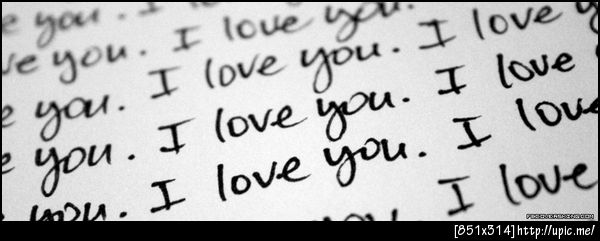 e you. I
ve you. I love you.
e you. I love you. I love y
e you. I love you. I love
you. I love you. I love
you. I love
[851x314]http://upic.me/